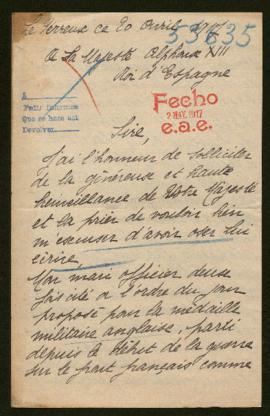 Le Perreux ce 20 Avril 1917
53635
A Sa Majesté Alphonse XIII
Roi d'Espagne
A
Pedir informes
Que se hace así
Devolver
Fecho
2 MAY. 1917
e.a.e.
Sire,
J'ai l'honneur de solliciter
de la généreuse et haute
bienveillance de Votre Majesté
et la prier de vouloir bien
m'excuser d'avoir oser lui
écrire
Mon mari officier deux
fois cité à l'ordre du jour
proposé pour la médaille
militaire anglaise, parti
depuis le début de la guerre
sur le front français comme